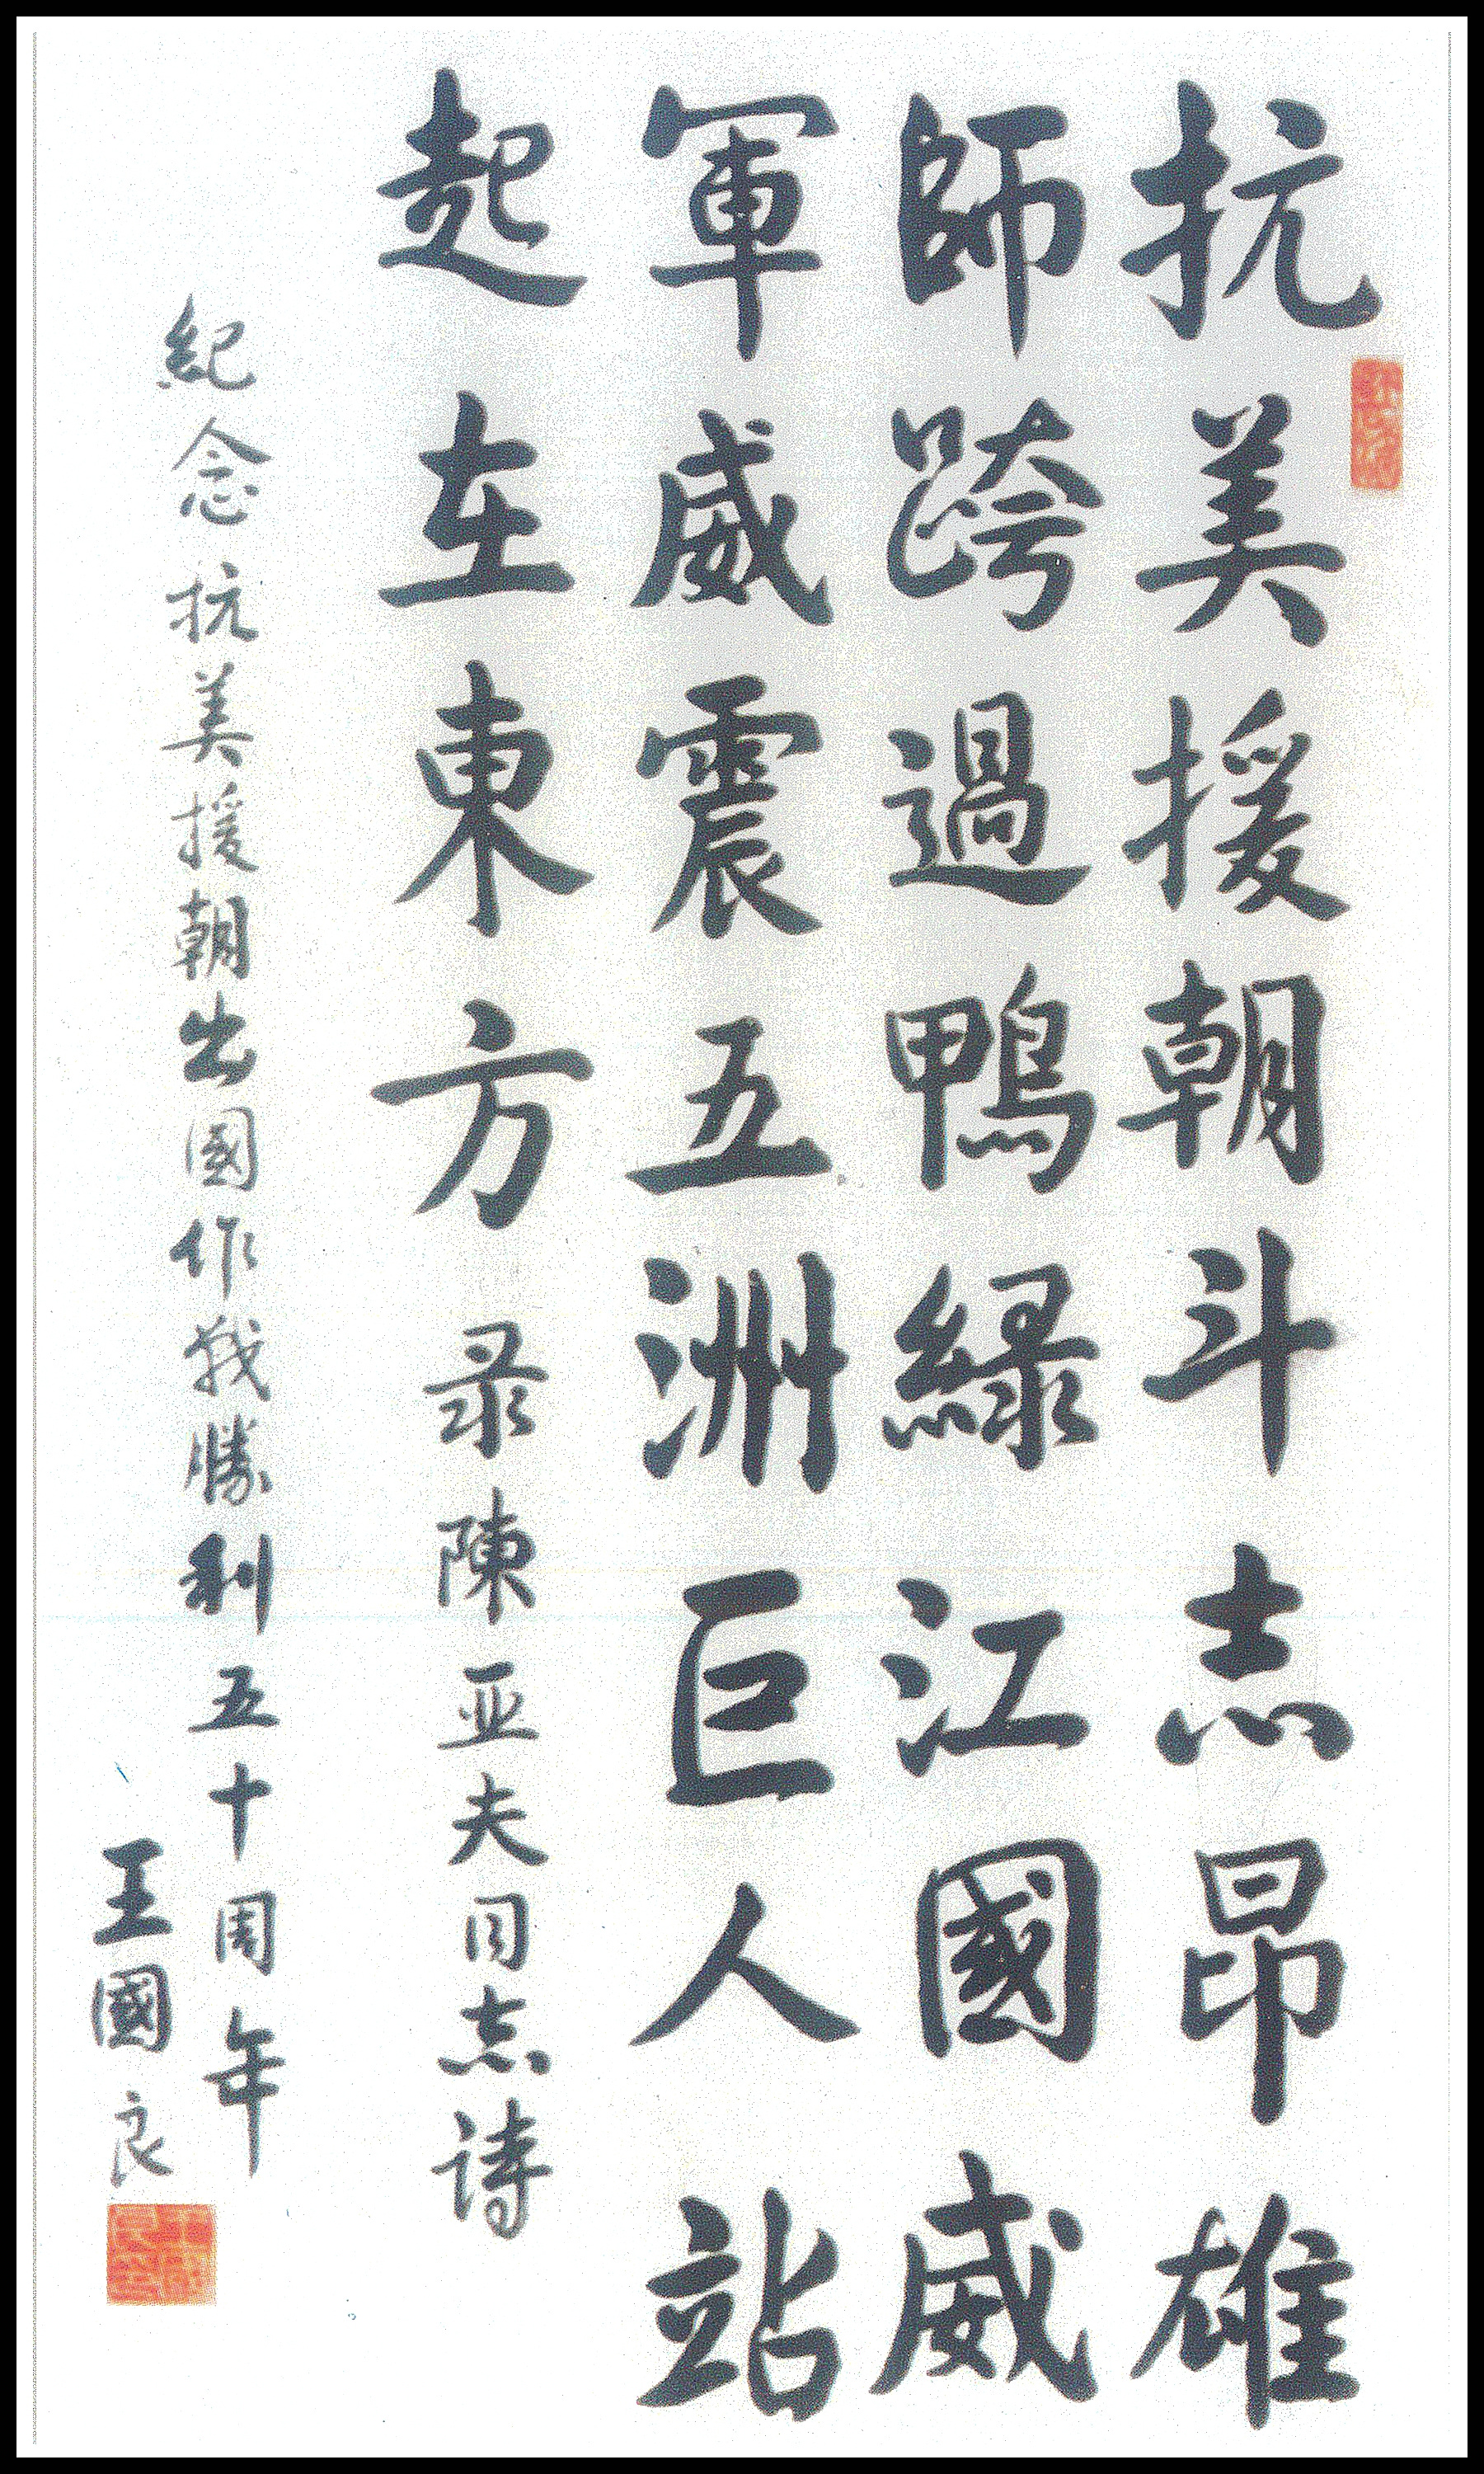 抗美援朝斗志昂雄
師跨過鴨緑江國威
軍威震五洲巨人站
起在東方 录陳亚夫同志诗
紀念抗美援朝出國作战勝利五十周年
王國良